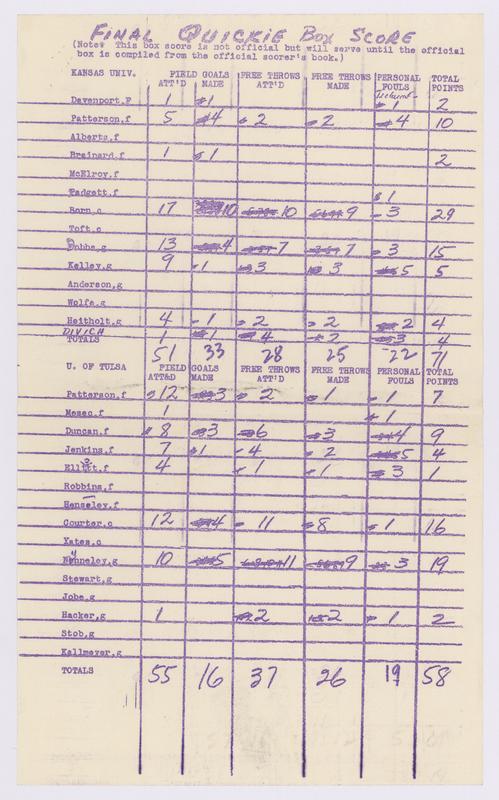 FINAL QUICKIE BOX SCORE
(Note: This box score is not official but will serve until the official
box is compiled from the official scorer's book.)
KANSAS UNIV. FIELD GOALS FREE THROWS FREE THROWS PERSONAL TOTAL
ATT'D MADE ATT'D MADE FOULS POINTS
Davenport,f 1 1 1 2
Patterson,f 5 4 2 2 4 10
Alberts,f
Brainard,f 1 1 2
McElroy,f
Padgett,f 1
Born,c 17 10 10 9 3 29
Toft,c
Dobbs,g 13 4 7 7 3 15
Kelley,g 9 1 3 3 5 5
Anderson,g
Wolfe,g
Heitholt,g 4 1 2 2 2 4
DIVICH 1 1 4 2 3 4
TOTALS 51 33 28 25 22 71
U. OF TULSA FIELD GOALS FREE THROWS FREE THROWS PERSONAL TOTAL
ATT&D MADE ATT'D MADE FOULS POINTS
Patterson,f 12 3 2 1 1 7
Mesec,f 1 1
Duncan,f 8 3 6 3 4 9
Jenkins,f 7 1 4 2 5 4
4 1 1 3 1
Robbins,f
Hensley,f
Courter,c 12 4 11 8 1 16
Yates,c
10 5 11 9 3 19
Stewart,g
Jobe,g
Hacker,g 1 2 2 1 2
Stob,g
Kallmeyer,g
TOTALS 55 16 37 26 19 58